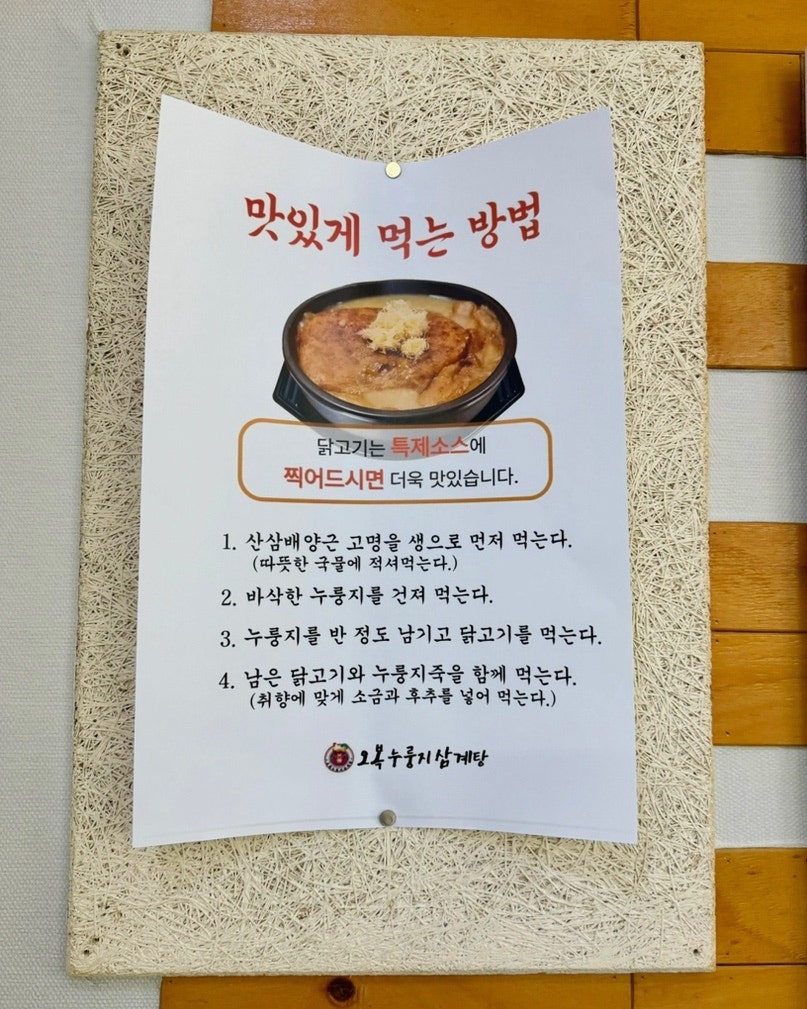 맛있게 먹는 방법
닭고기는 특제소스에
찍어드시면 더욱 맛있습니다.
1. 산삼배양근 고명을 생으로 먼저 먹는다.
(따뜻한 국물에 적셔먹는다.)
2. 바삭한 누룽지를 건져 먹는다.
3. 누룽지를 반 정도 남기고 닭고기를 먹는다.
4. 남은 닭고기와 누룽지죽을 함께 먹는다.
(취향에 맞게 소금과 후추를 넣어 먹는다.)
오복누룽지삼계탕